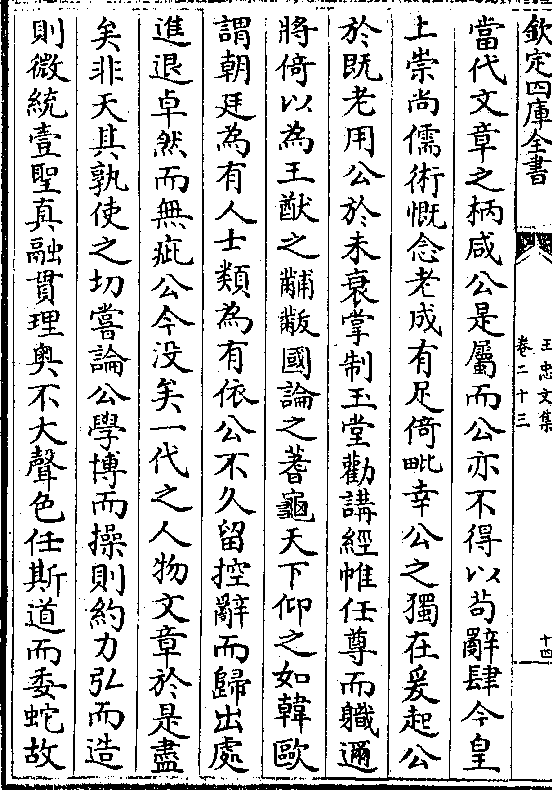 欽定四庫全書
王忠文集
卷二十三
十四
當代文章之柄咸公是屬而公亦不得以茍辭肆今皇
上崇尚儒術慨念老成有足倚毗幸公之獨在爰起公
於既老用公於未衰掌制玉堂勸講經帷任尊而職邇
將倚以為王猷之黼黻國論之蓍龜天下仰之如韓歐
謂朝廷為有人士類為有依公不久留控辭而歸出處
進退卓然而無疵公今没矣一代之人物文章於是盡
矣非天其孰使之切嘗論公學博而操則約力弘而造
則微統壹聖真融貫理奥不大聲色任斯道而委蛇故